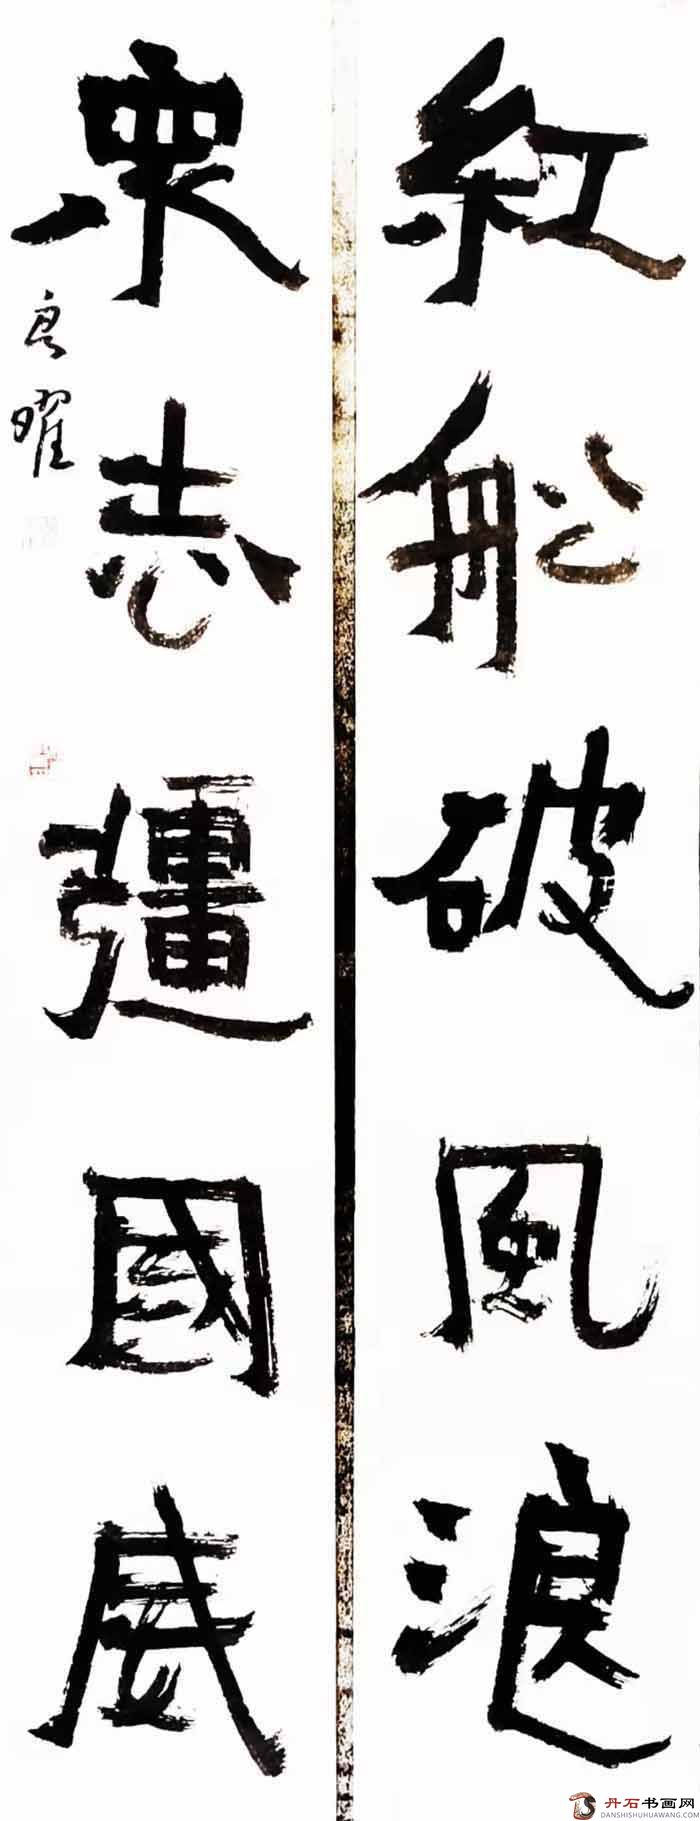 紅舩破風浪
衆志彊國威
良曜
丹石书画网
DANSHISHUHUAWANG.COM